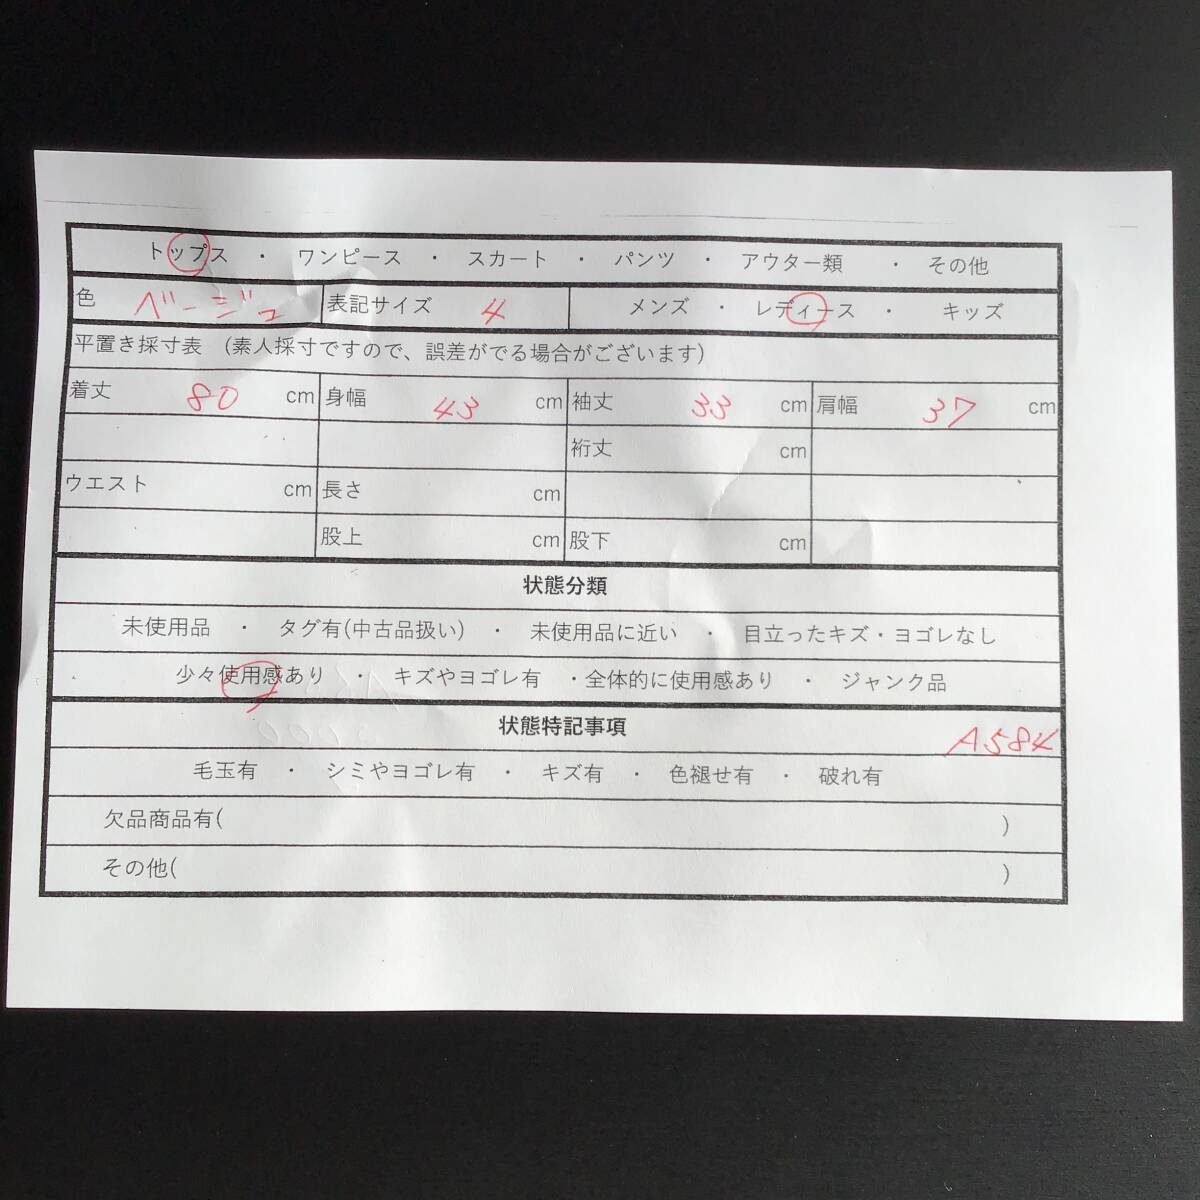 トップス ・ ワンピース ・ スカート ・ パンツ ・ アウター類 ・ その他
色 ベージュ 表記サイズ 4 メンズ ・ レディース ・ キッズ
平置き採寸表 (素人採寸ですので、誤差がでる場合がございます)
着丈 80 cm 身幅 43 cm 袖丈 33 cm 肩幅 37 cm
裄丈 cm
ウエスト cm 長さ cm
股上 cm 股下 cm
状態分類
未使用品 ・ タグ有(中古品扱い) ・ 未使用品に近い ・ 目立ったキズ・ヨゴレなし
少々使用感あり ・ キズやヨゴレ有 ・全体的に使用感あり ・ ジャンク品
状態特記事項 A584
毛玉有 ・ シミやヨゴレ有 ・ キズ有 ・ 色褪せ有 ・ 破れ有
欠品商品有( )
その他( )